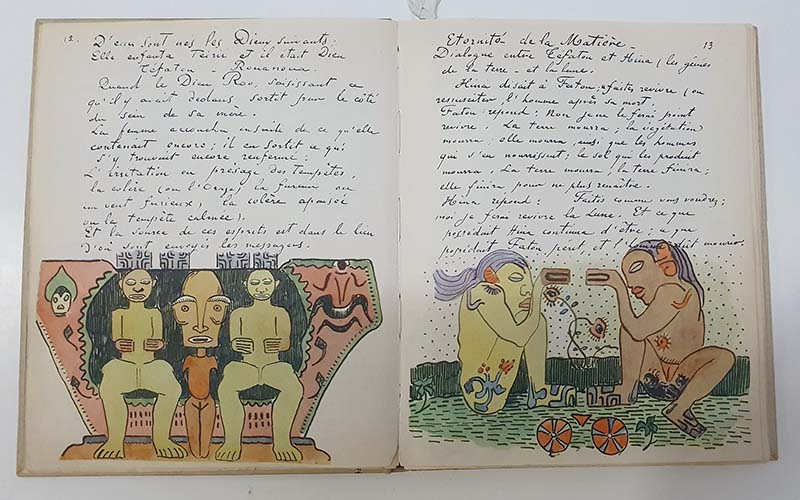 12.
D'eux sont nés les Dieux suivants.
Elle enfanta Téirii et il était Dieu
Téfatou - Rouanoua.
Quand le Dieu Roo, saisissant ce
qu'il y avait dedans, sortit par le côté
du sein de sa mère.
La femme accoucha ensuite de ce qu'elle
contenait encore; il en sortit ce qui
s'y trouvait encore renfermé:
L'irritation ou présage des Tempêtes,
la colère (ou l'Orage) la fureur ou
un vent furieux, la colère apaisée
ou la tempête calmée).
Et la source de ces esprits est dans le lieu
D'où sont envoyés les messagers.
13
Eternité de la Matière -
Dialogue entre Téfatou et Hina (les génies
de la terre - et la lune.
Hina disait à Fatou; "faites revivre (ou
ressusciter, l'homme après sa mort.
Fatou répond: Non je ne le ferai point
revivre. La terre mourra; la végétation
mourra; elle mourra, ainsi que les hommes
qui s'en nourrissent; le sol qui les produit
mourra. La terre mourra, la terre finira;
elle finira pour ne plus renaître.
Hina répond: Faites comme vous voudrez;
moi je ferai revivre la Lune. Et ce que
possédait Hina continua d'être; ce que
possédait Fatou périt, et l'homme dut mourir.